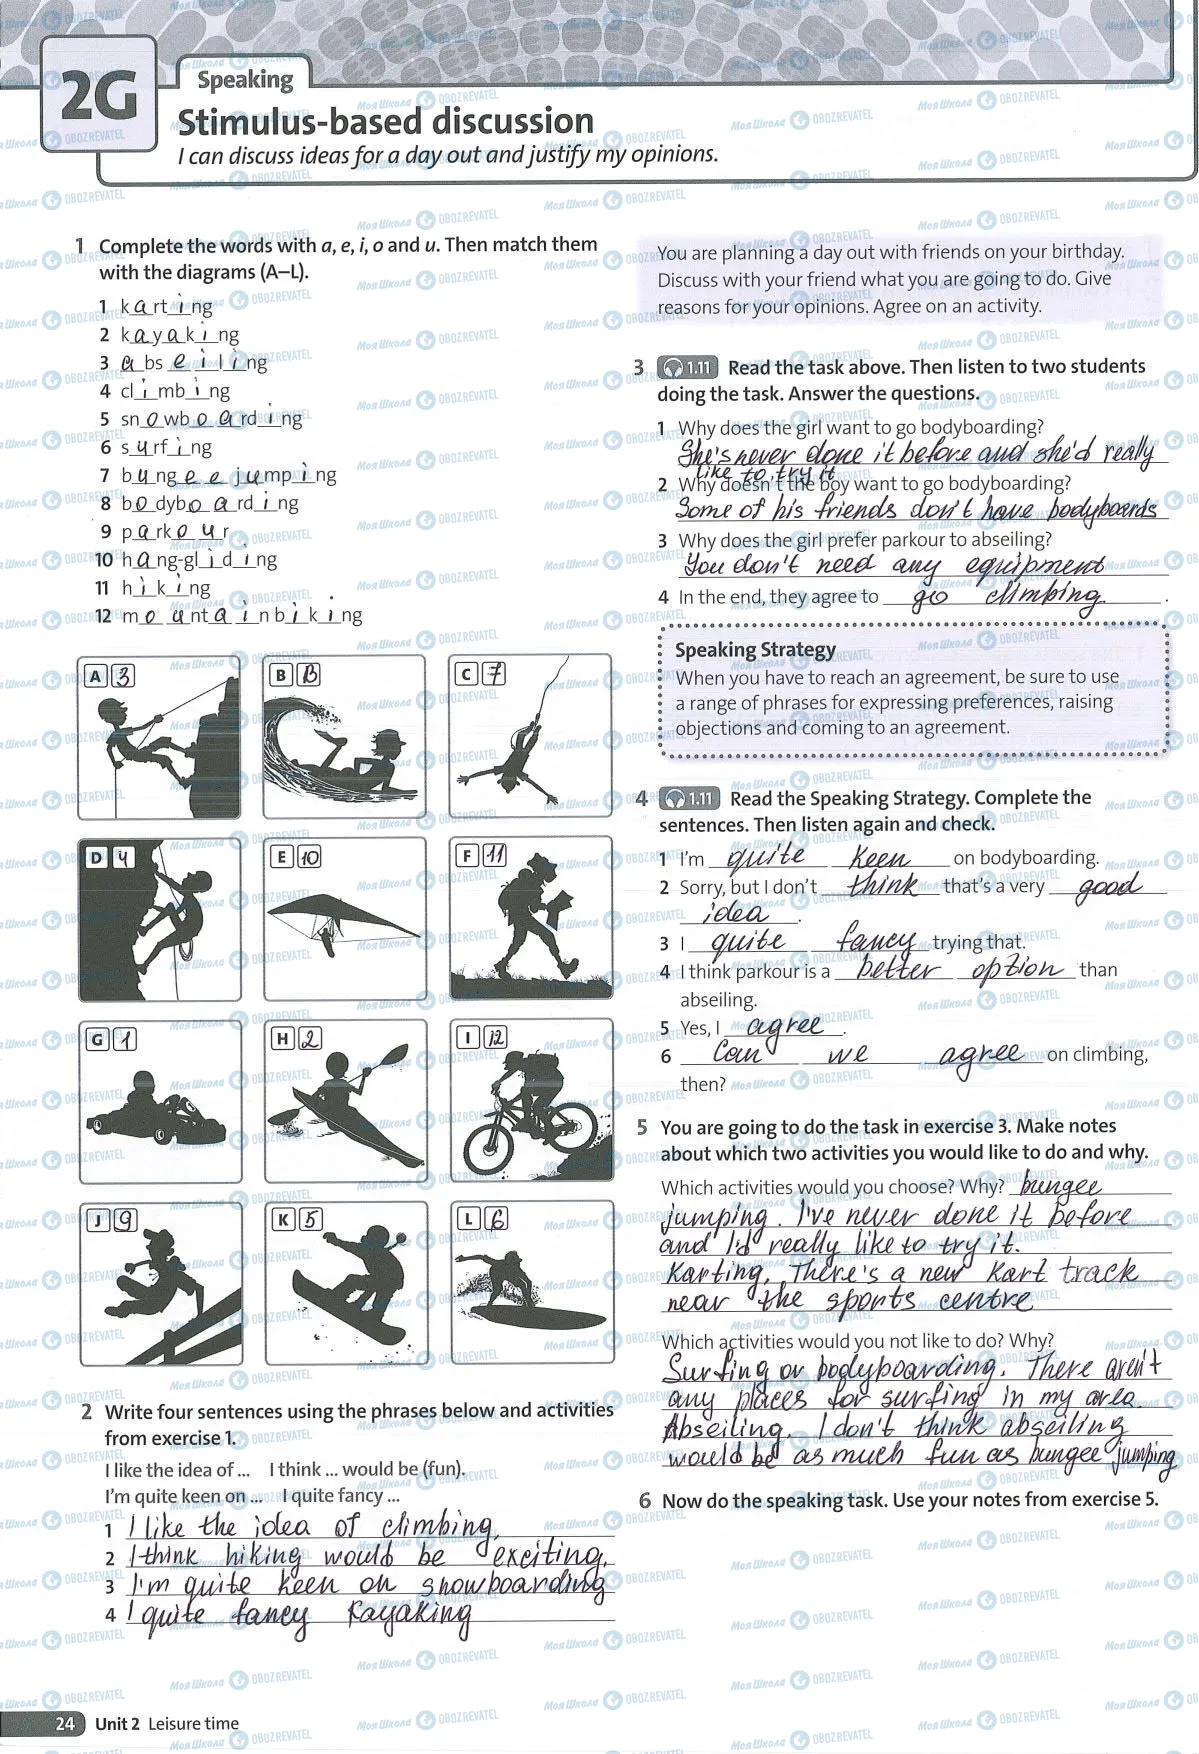 2G
Speaking
Stimulus-based discussion
I can discuss ideas for a day out and justify my opinions.
1 Complete the words with a, e, i, o and u. Then match them
with the diagrams (A–L).
1 karting
2 kayaking
3 abseiling
4 climbing
5 snowboarding
6 surfing
7 bungee jumping
8 bodyboarding
9 parkour
10 hang-gliding
11 hiking
12 mountain biking
A 3
B B
C 7
D 4
E 10
F 11
G 1
H 2
I 12
J 9
K 5
L 6
2 Write four sentences using the phrases below and activities
from exercise 1.
I like the idea of ... I think ... would be (fun).
I'm quite keen on ... I quite fancy ...
1 I like the idea of climbing.
2 I think hiking would be exciting.
3 I'm quite keen on snowboarding
4 I quite fancy kayaking
You are planning a day out with friends on your birthday.
Discuss with your friend what you are going to do. Give
reasons for your opinions. Agree on an activity.
3 1.11 Read the task above. Then listen to two students
doing the task. Answer the questions.
1 Why does the girl want to go bodyboarding?
She's never done it before and she'd really
like to try it
2 Why doesn't the boy want to go bodyboarding?
Some of his friends don't have bodyboards
3 Why does the girl prefer parkour to abseiling?
You don't need any equipment
4 In the end, they agree to go climbing.
Speaking Strategy
When you have to reach an agreement, be sure to use
a range of phrases for expressing preferences, raising
objections and coming to an agreement.
4 1.11 Read the Speaking Strategy. Complete the
sentences. Then listen again and check.
1 I'm quite keen on bodyboarding.
2 Sorry, but I don't think that's a very good
idea.
3 I quite fancy trying that.
4 I think parkour is a better option than
abseiling.
5 Yes, I agree.
6 Can we agree on climbing,
then?
5 You are going to do the task in exercise 3. Make notes
about which two activities you would like to do and why.
Which activities would you choose? Why? bungee
jumping. I've never done it before
and I'd really like to try it.
Karting. There's a new kart track
near the sports centre
Which activities would you not like to do? Why?
Surfing or bodyboarding. There aren't
any places for surfing in my area.
Abseiling. I don't think abseiling
would be as much fun as bungee jumping
6 Now do the speaking task. Use your notes from exercise 5.
24 Unit 2 Leisure time
Моя Школа OBOZREVATEL